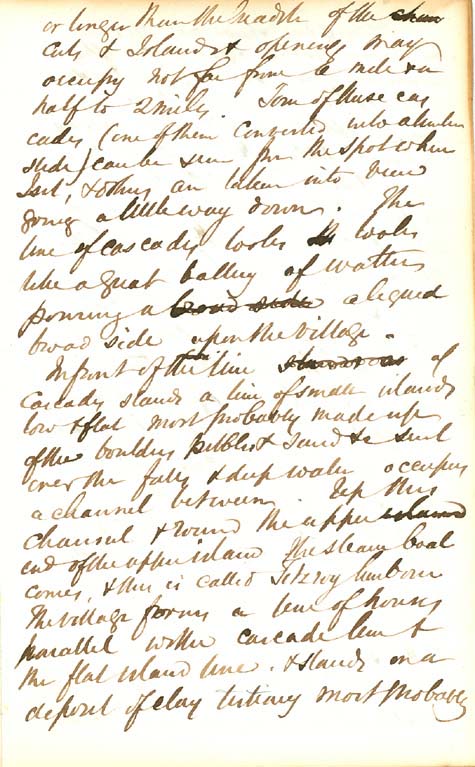 or longer than the breadth of the
cuts & Islands & openings may
occupy not far from a mile & a
half to 2 miles. Some of these cas
cades (one of them converted into a timber
slide) can be seen from the spot where
I sit, & others are taken into view
going a little way down. The
line of cascades looks looks
like a great battery of waters
pouring a broad side a liquid
broad side upon the village.
In front of this line of
Cascades stands a line of small islands
low & flat most probably made up
of the boulders pebbles & sand &c sent
over the falls & deep water occupies
a channel between. Up this
channel & round the upper island
end of the upper island the steam boat
comes, & this is called Fitzroy harbour
The village forms a line of houses
parallel with the cascade line &
the flat island line. & stands on a
deposit of clay tertiary most probably